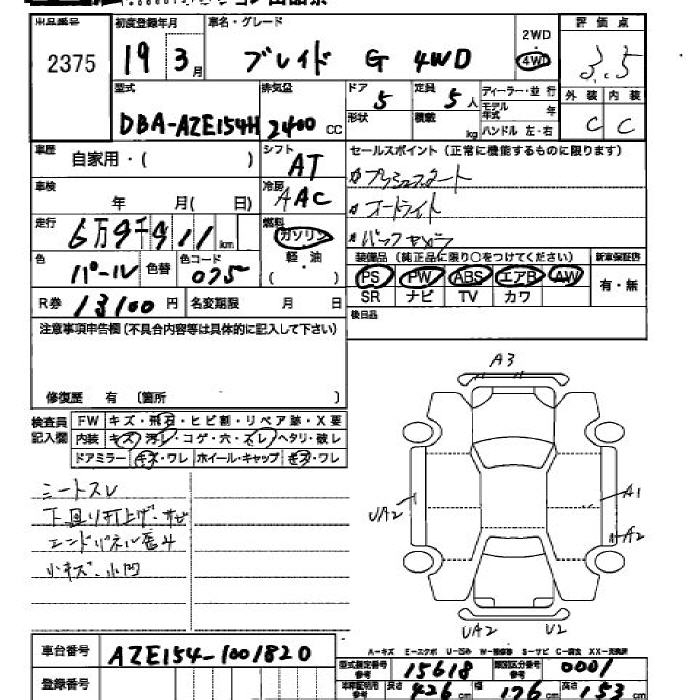 出品番号 初度登録年月 車名・グレード 2WD 評価点
2375 19 3月 ブレイド G 4WD 4WD 3.5
型式 排気量 ドア 5 定員 5人 ディーラー・並行 外装 内装
DBA-AZE154H 2400 CC 形状 積載 kg モデル年式 年 C C
ハンドル 左・右
車歴 自家用・( ) シフト AT セールスポイント(正常に機能するものに限ります)
車検 年 月( 日) 冷房 AAC プッシュスタート
オートライト
走行 6万9千911km 燃料 ガソリン バックカメラ
軽・油
( )
色 パール 色替 色コード 075 装備品(純正品に限り○をつけてください) 新車保証書
PS PW ABS エアB AW 有・無
R券 13100円 名変期限 月 日 SR ナビ TV カワ
注意事項申告欄(不具合内容等は具体的に記入して下さい) 後日品
修復歴 有 〔箇所
検査員記入欄 FW キズ・飛石・ヒビ割・リペア跡・X要
内装 キズ・汚レ・コゲ・穴・スレ・ヘタリ・破レ
ドアミラー キズ・ワレ ホイール・キャップ キズ・ワレ
シートスレ
下回り打上げ・サビ
エンドパネル歪ミ
小キズ・小凹
A3
UA2 A1
A2
UA2 U2
車台番号 AZE154-1001820
登録番号
A-キズ E-エクボ U-凹み W-補修跡 S-サビ C-腐食 XX-交換済
型式指定番号 参考 15618 類別区分番号 参考 0001
車検証明書 参考 長さ 426cm 幅 176cm 高さ 153cm